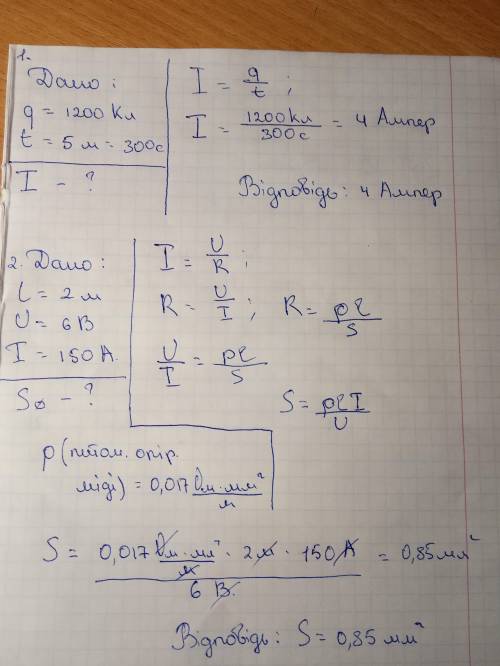 1.
Дано:
q = 1200 Кл
t = 5 м = 300с
I - ?
I = q/t ;
I = 1200Кл/300с = 4 Ампер
Відповідь: 4 Ампер
2. Дано:
l = 2 м
U = 6 В
I = 150 А.
S - ?
I = U/R ;
R = U/I ; R = ρl/S
U/I = ρl/S
S = ρlI/U
ρ (питом. опір.
міді) = 0,017 Ом·мм²/м
S = 0,017 Ом·мм²/м · 2м · 150 А / 6 В. = 0,85 мм²
Відповідь: S = 0,85 мм²